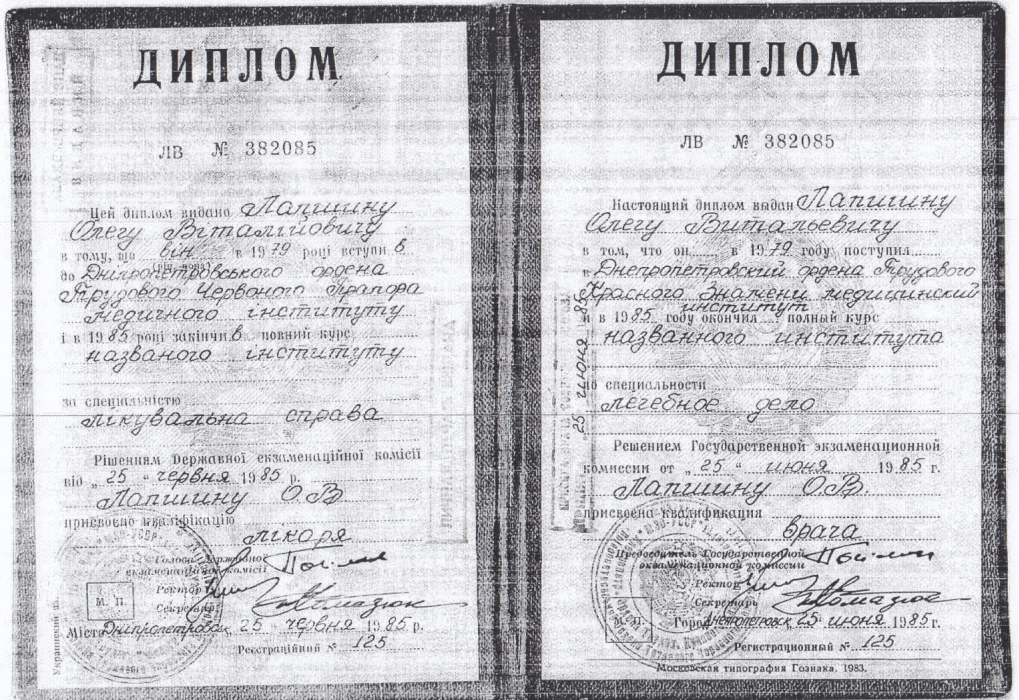 ДИПЛОМ
ЛВ № 382085
Цей диплом видано Лапшину
Олегу Віталійовичу
в тому, що він в 1979 році вступив
до Дніпропетровського ордена
Трудового Червоного Прапора
медичного інституту
і в 1985 році закінчив повний курс
названого інституту
за спеціальністю
лікувальна справа
Рішенням Державної екзаменаційної комісії
від „25“ червня 1985 р.
Лапшину О.В
присвоєно кваліфікацію
лікаря
Голова Державної
екзаменаційної комісії
Ректор
Секретар
М. П.
Місто Дніпропетровськ, 25 червня 1985 р.
Реєстраційний № 125
Украинский п.
ДИПЛОМ
ЛВ № 382085
Настоящий диплом выдан Лапшину
Олегу Витальевичу
в том, что он в 1979 году поступил
в Днепропетровский ордена Трудового
Красного Знамени медицинский
институт
и в 1985 году окончил полный курс
названного института
по специальности
лечебное дело
Решением Государственной экзаменационной
комиссии от „25“ июня 1985 г.
Лапшину О.В.
присвоена квалификация
врача
Председатель Государственной
экзаменационной комиссии
Ректор
Секретарь
Город Днепропетровск, 25 июня 1985 г.
Регистрационный № 125
Московская типография Гознака. 1983.
25 июня 85